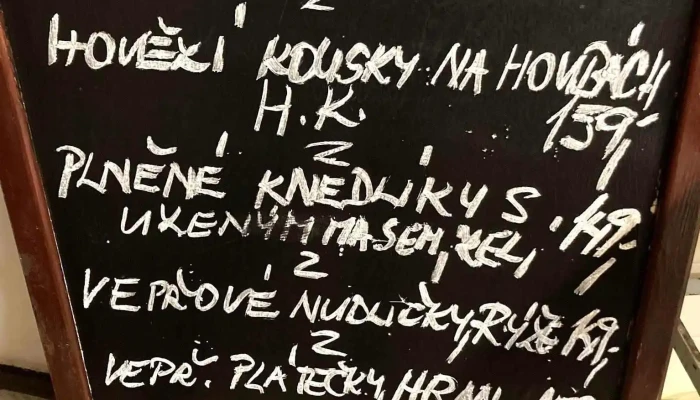 ~
HOVĚZÍ KOUSKY NA HOUBÁCH
H.K. 159,-
~
PLNĚNÉ KNEDLÍKY S
UZENÝM MASEM, ZELÍ 149,-
~
VEPŘOVÉ NUDLIČKY, RÝŽE 149,-
~
VEPŘ. PLÁTEČKY,